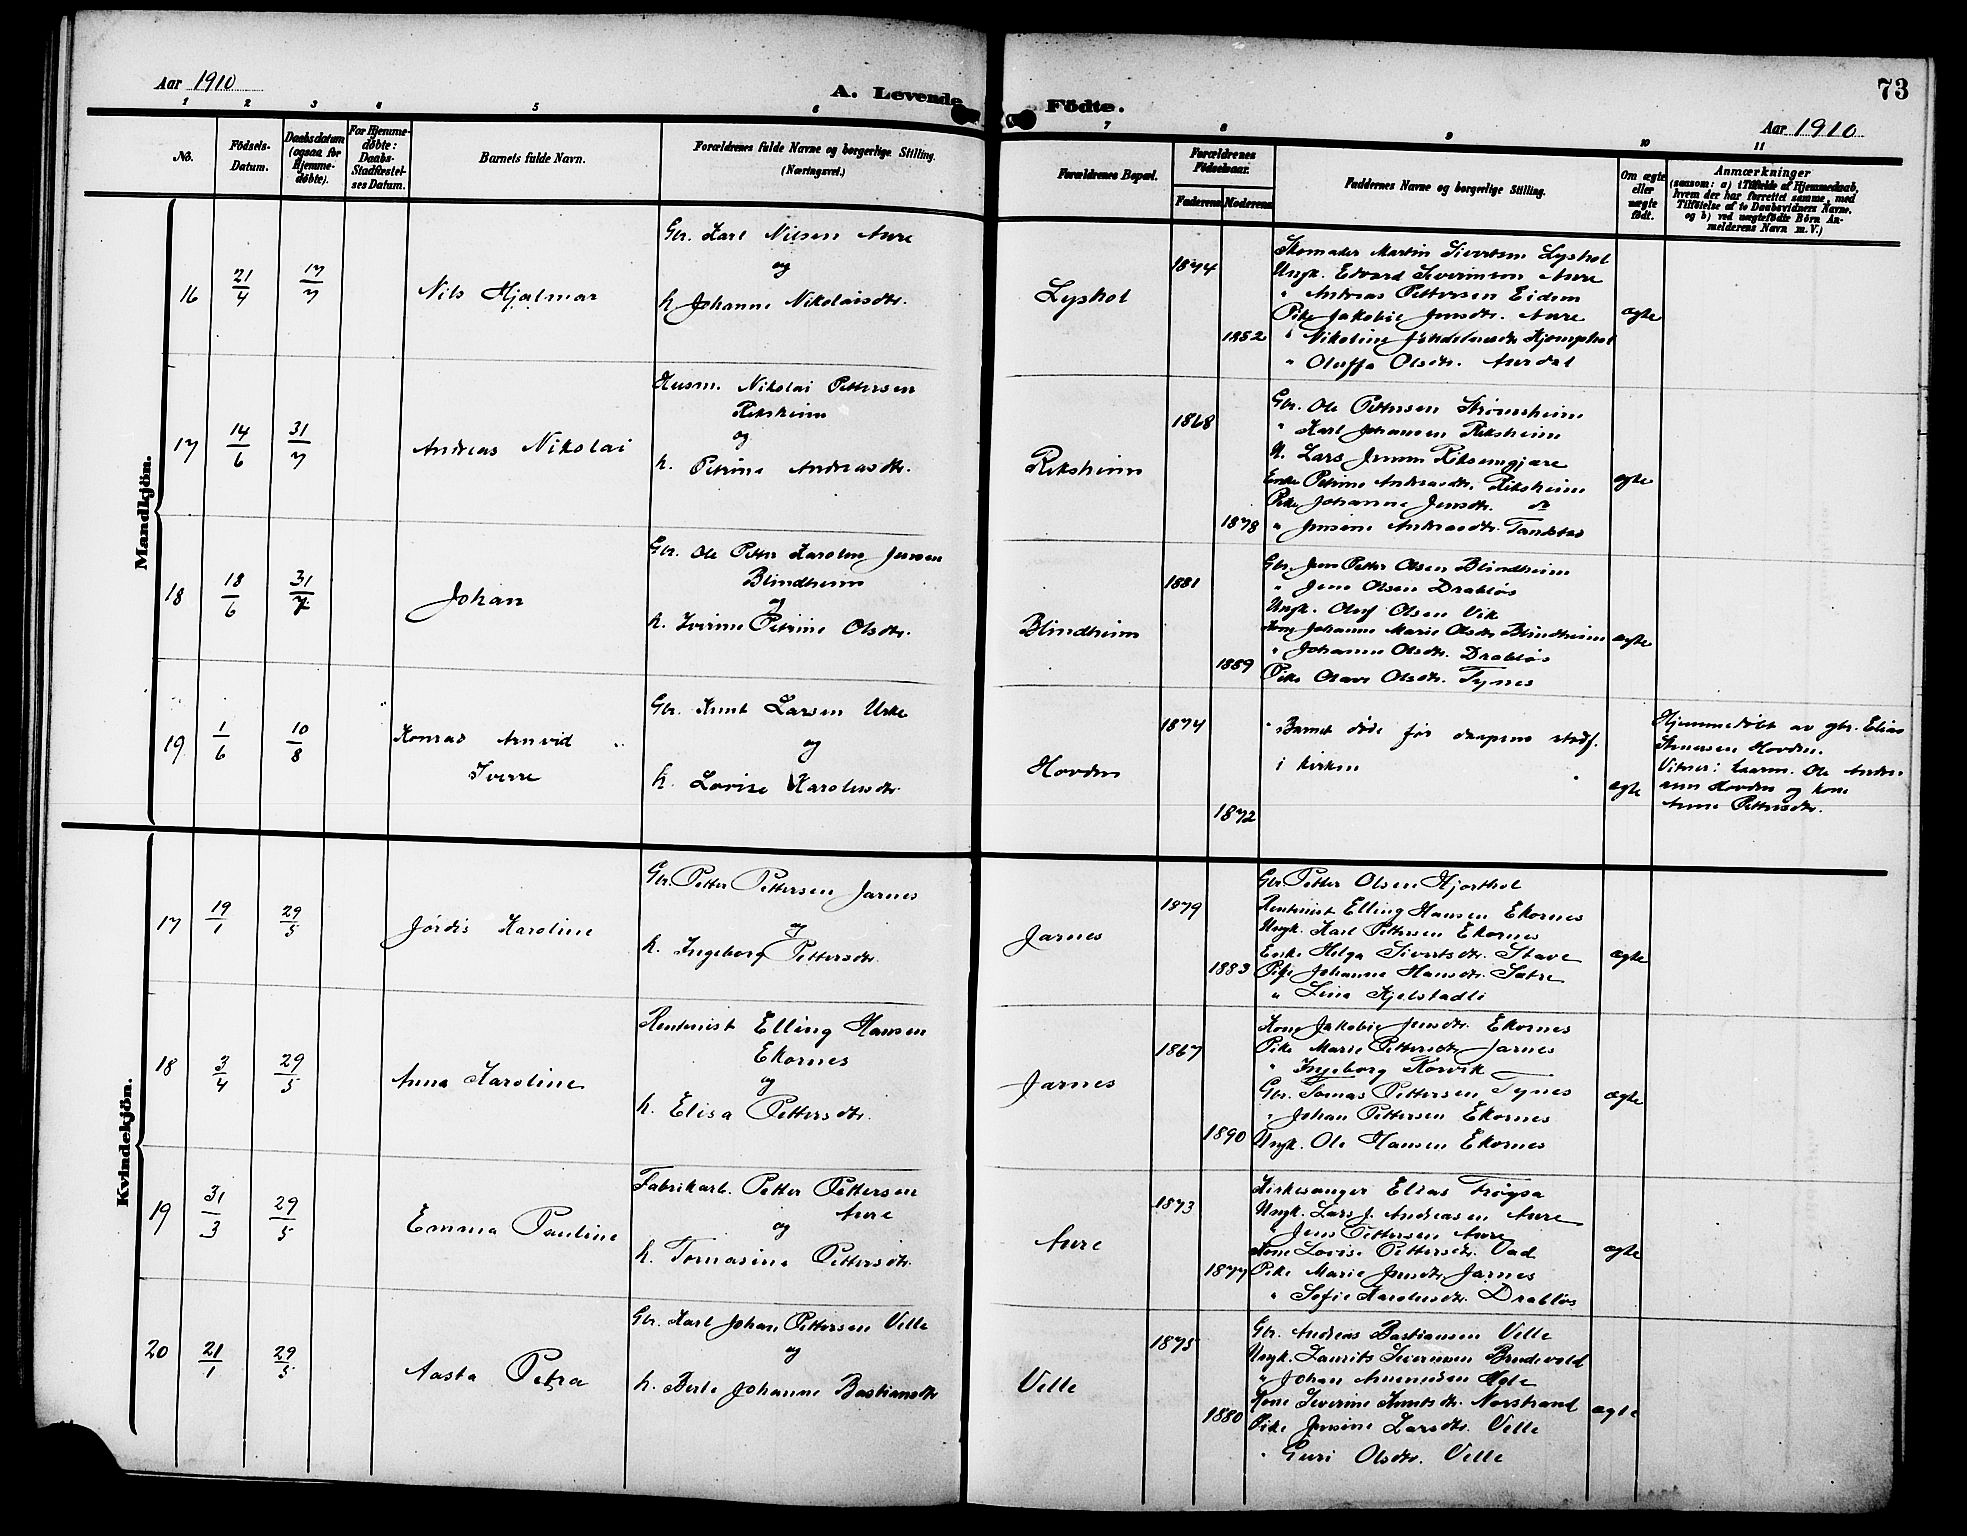 Aar 1910
A. Levende
1 2 3 4 5 6
No.
Födsels-Datum.
Daabsdatum (ogsaa for Hjemmedøbte).
For Hjemmedøbte: Daabs-Stadfæstelses Datum.
Barnets fulde Navn.
Forældrenes fulde Navne og borgerlige Stilling.
(Næringsvei.)
Mandkjön.
16 21/4 17/7 Nils Hjalmar
Gbr. Karl Nilsen Aure
og
h. Johanne Nikolaisdtr.
17 14/6 31/7 Andreas Nikolai
Husm. Nikolai Pettersen
Riksheim
og
h. Petrine Andreasdtr.
18 18/6 31/7 Johan
Gbr. Ole Petter Karolus Jensen
Blindheim
og
h. Iverine Petrine Olsdtr.
19 1/6 10/8 Konrad Arnvid
Sverre
Gbr. Knut Larsen Urke
og
h. Lovise Karolusdtr.
Kvindekjön.
17 19/1 29/5 Jørdis Karoline
Gbr. Petter Pettersen Jarnes
og
h. Ingeborg Pettersdtr.
18 3/4 29/5 Anna Karoline
Rentenist Elling Hansen
Ekornes
og
h. Elisa Pettersdtr.
19 31/3 29/5 Emma Pauline
Fabrikarb. Petter Pettersen
Aure
og
h. Tomasine Pettersdtr.
20 21/1 29/5 Aasta Petra
Gbr. Karl Johan Pettersen Velle
og
h. Berte Johanne Bastiansdtr
Födte.
73
Aar 1910
7 8 9 10 11
Forældrenes Bopæl.
Forældrenes Födselsaar.
Faderens Moderens
Faddernes Navne og borgerlige Stilling.
Om ægte eller uægte födt.
Anmærkninger
(saasom: a) i Tilfælde af Hjemmedaab,
hvem der har forrettet samme, med
Tilföielse af to Daabsvidners Navne,
og b) ved uægtefödte Börn Anmelderens Navn m. V.)
Lyshol 1874 1882 ægte
Skomaker Martin Sivertsen Lyshol
Ungk. Edvard Severinsen Aure
" Andreas Pettersen Eidem
Pike Jakobie Jensdtr. Aure
" Nikoline
" Oluffa Olsdtr. Aurdal
Riksheim 1868 1878 ægte
Gbr. Ole Pettersen Strømsheim
" Karl Johansen Riksheim
U. Lars Jensen Riksemgjære
Enke Petrine Andreasdtr. Riksheim
Pike Johanne Jensdtr. do
" Jensine Andreasdtr. Tandstad
Blindheim 1881 1889 ægte
Gbr. Jens Petter Olsen Blindheim
" Jens Olsen Drabløs
Ungk. Oluf Olsen Vik
Kone Johanne Marie Olsdtr Blindheim
" Johanne Olsdtr. Drabløs
Pike Olave Olsdtr. Tynes
Hovden 1874 1872 ægte
Barnet døde før daapens stadf.
i kirken
Hjemmedøbt av gbr. Elias
Hovden.
Vitner: Ole Andre-
sen Hovden og kone
Anne Pettersdtr.
Jarnes 1879 1883 ægte
Gbr. Petter Olsen Hjorthol
Rentenist Elling Hansen Ekornes
Ungk. Karl Pettersen Ekornes
Enke Helga Sivertsdtr. Stave
Pike Johanne Hansdtr. Sætre
" Lina Kjelstadli
Jarnes 1867 1890 ægte
Kone Jakobie Jensdtr. Ekornes
Pike Marie Pettersdtr Jarnes
" Ingeborg Korvik
Gbr. Tomas Pettersen Tynes
" Johan Pettersen Ekornes
Ungk. Ole Hansen Ekornes
Aure 1873 1877 ægte
Kirkesanger Elias Frøysa
Ungk. Lars J. Andreasen Aure
" Jens Pettersen Aure
Kone Lovise Pettersdtr. Vad
Pike Marie Jensdtr. Jarnes
" Sofie Karolusdtr. Drabløs
Velle 1875 1880 ægte
Gbr. Andreas Bastiansen Velle
Ungk. Laurits Severinsen Brudevold
" Johan
Kone Severine Knutsdtr. Norstrand
Pike Jensine Larsdtr. Velle
" Guri Olsdtr. Velle